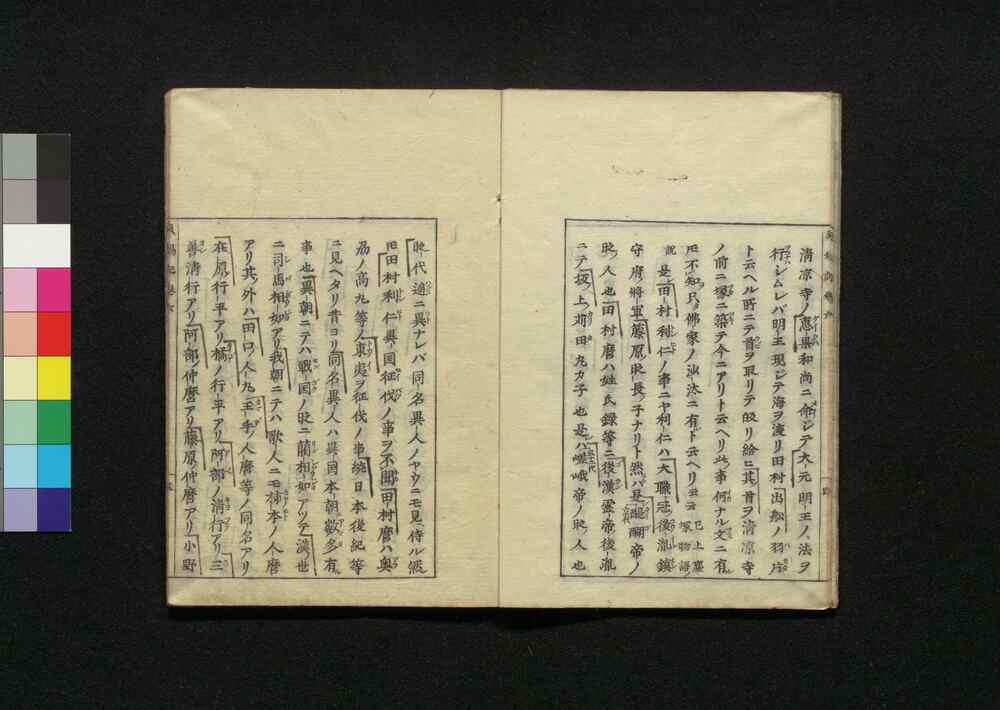 清凉寺ノ惠果和尚ニ命ジテ大元明王ノ法ヲ
行シムレバ明王現ジテ海ヲ渡リ田村出舩ノ羽片
ト云ヘル所ニテ首ヲ取リテ皈リ給ヒ其首ヲ清凉寺
ノ前ニ塚ヲ築テ今ニアリト云ヘリ此事何ナル文ニ有
不知只佛家ノ沙汰ニ有ト云ヘリ云云 已上塵塚物語
説是田村利仁ノ事ニヤ利仁ハ大職冠後胤鎮
守府將軍藤原時長ノ子ナリト然バ是醍醐帝ノ
時人也田村麿ハ姓氏録等ニ後漢靈帝後胤
ニテ坂上苅田丸カ子也是ハ嵯峨帝ノ時人也
時代適ニ異ナレバ同名異人ノヤウニモ見ヘ侍ル假
田村利仁異国征伐ノ事ヲ不聞田村麿ハ奥
ノ高丸等ノ東夷ヲ征伐ノ事続日本後紀等
ニ見ヘタリ昔ヨリ同名異人ハ異国本朝數多有
事也異朝ニテハ戰国ノ時ニ藺相如アリテ漢ノ世
ニ司馬相如アリ我朝ニテハ歌人ニモ柿本ノ人麿
アリ其外ハ田口ノ人丸玉手ノ人麿等ノ同名アリ
在原行平アリ橘ノ行平アリ阿部ノ清行アリ三
善清行アリ阿部仲麿アリ藤原仲麿アリ小野